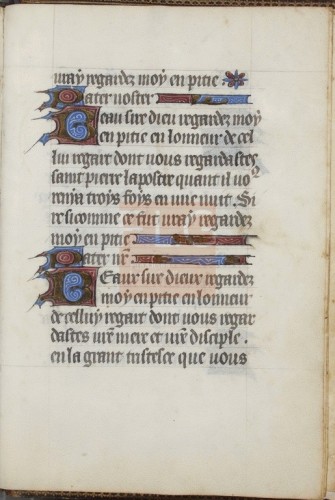 vray regardez moy en pitie
Pater noster
Beau sire dieu regardez moy
en pitie en lonneur de cel
lui regart dont vous regardastes
saint pierre lapostre quant il vo9
renya troys foys en une nuit. Si
re si comme ce fut vray regardez
moy en pitie
Pater nr̄
Beaux sire dieux regardez
moy en pitie en lonneur
de celluy regart dont vous regar
dastes vr̄e mere et vr̄e disciple .
en la grant tristesce que vous